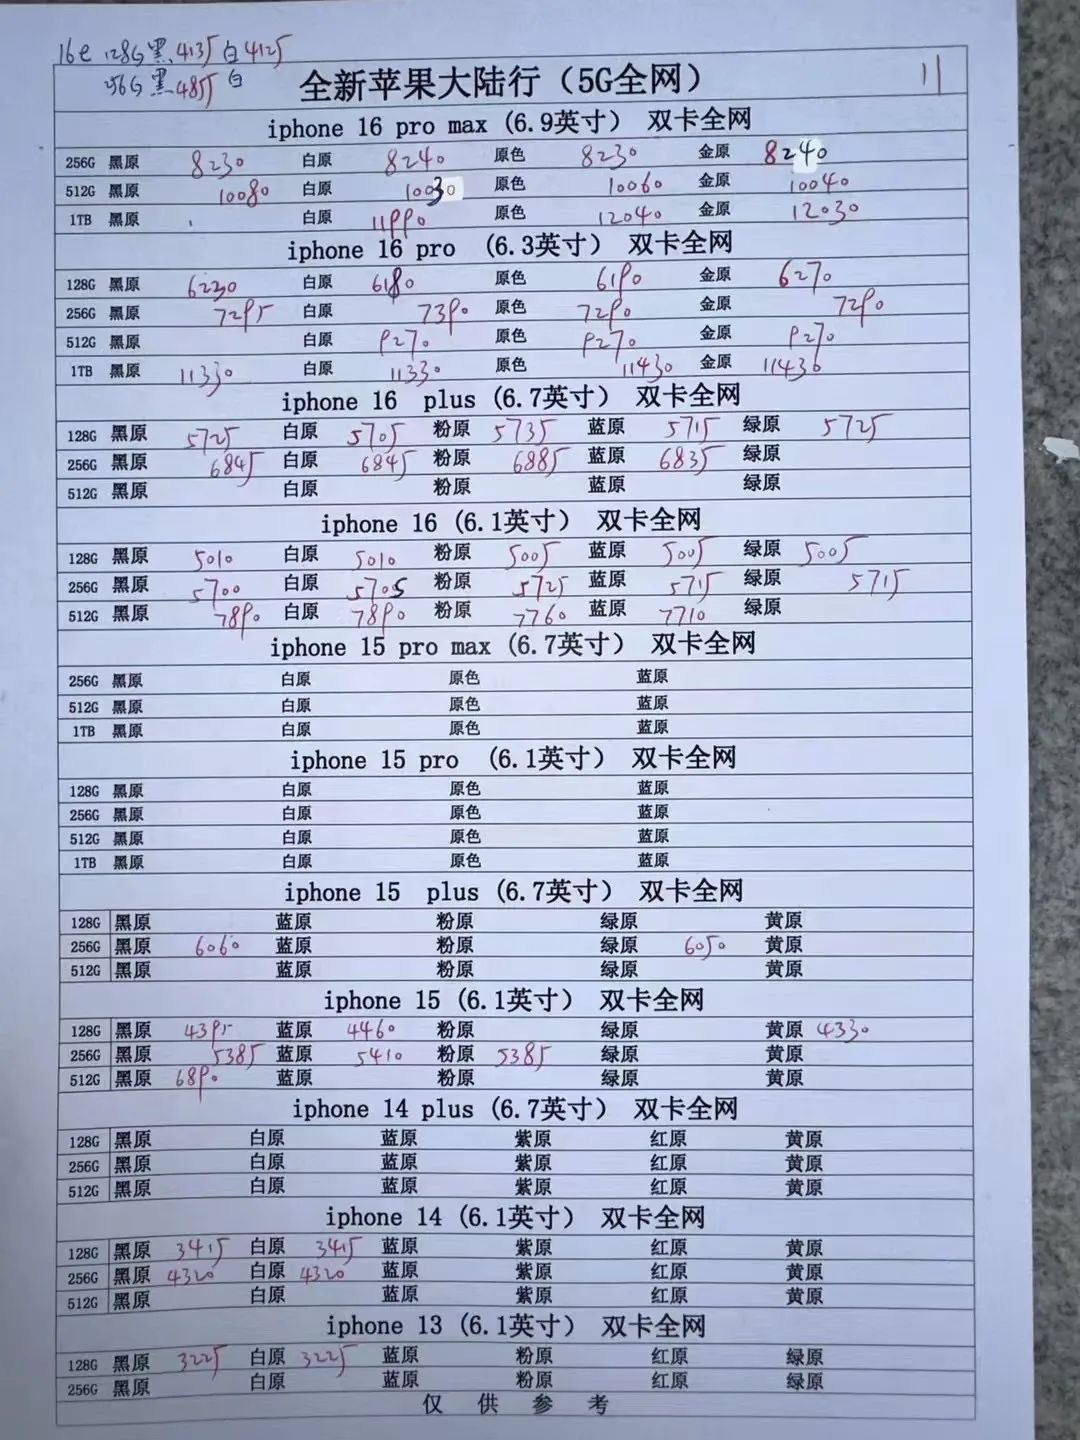 16e 128G 黑 4135 白 4125
256G 黑 4855 白
全新苹果大陆行（5G全网） 11
iphone 16 pro max (6.9英寸） 双卡全网
256G 黑原 8230 白原 8240 原色 8230 金原 8240
512G 黑原 10080 白原 10030 原色 10060 金原 10040
1TB 黑原 白原 11990 原色 12040 金原 12030
iphone 16 pro （6.3英寸） 双卡全网
128G 黑原 6230 白原 6180 原色 6190 金原 6270
256G 黑原 7295 白原 7390 原色 7290 金原 7290
512G 黑原 白原 9270 原色 9270 金原 9270
1TB 黑原 11330 白原 11330 原色 11430 金原 11430
iphone 16 plus (6.7英寸） 双卡全网
128G 黑原 5725 白原 5705 粉原 5735 蓝原 5715 绿原 5725
256G 黑原 6845 白原 6845 粉原 6885 蓝原 6835 绿原
512G 黑原 白原 粉原 蓝原 绿原
iphone 16 (6.1英寸） 双卡全网
128G 黑原 5010 白原 5010 粉原 5005 蓝原 5005 绿原 5005
256G 黑原 5700 白原 5705 粉原 5725 蓝原 5715 绿原 5715
512G 黑原 7890 白原 7890 粉原 7760 蓝原 7710 绿原
iphone 15 pro max (6.7英寸） 双卡全网
256G 黑原 白原 原色 蓝原
512G 黑原 白原 原色 蓝原
1TB 黑原 白原 原色 蓝原
iphone 15 pro （6.1英寸） 双卡全网
128G 黑原 白原 原色 蓝原
256G 黑原 白原 原色 蓝原
512G 黑原 白原 原色 蓝原
1TB 黑原 白原 原色 蓝原
iphone 15 plus (6.7英寸） 双卡全网
128G 黑原 蓝原 粉原 绿原 黄原
256G 黑原 6060 蓝原 粉原 绿原 6050 黄原
512G 黑原 蓝原 粉原 绿原 黄原
iphone 15 (6.1英寸） 双卡全网
128G 黑原 4395 蓝原 4460 粉原 绿原 黄原 4330
256G 黑原 5385 蓝原 5410 粉原 5385 绿原 黄原
512G 黑原 6890 蓝原 粉原 绿原 黄原
iphone 14 plus (6.7英寸） 双卡全网
128G 黑原 白原 蓝原 紫原 红原 黄原
256G 黑原 白原 蓝原 紫原 红原 黄原
512G 黑原 白原 蓝原 紫原 红原 黄原
iphone 14 (6.1英寸） 双卡全网
128G 黑原 3415 白原 3415 蓝原 紫原 红原 黄原
256G 黑原 4320 白原 4320 蓝原 紫原 红原 黄原
512G 黑原 白原 蓝原 紫原 红原 黄原
iphone 13 (6.1英寸） 双卡全网
128G 黑原 3225 白原 3225 蓝原 粉原 红原 绿原
256G 黑原 白原 蓝原 粉原 红原 绿原
仅 供 参 考